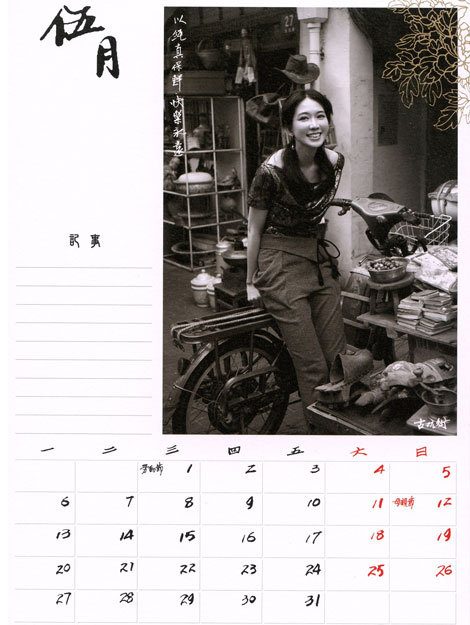 伍月
以純真保鮮快樂
27
記事
一 二 三 四 五 六 日
勞動節 1 2 3 4 5
6 7 8 9 10 11 母親節 12
13 14 15 16 17 18 19
20 21 22 23 24 25 26
27 28 29 30 31